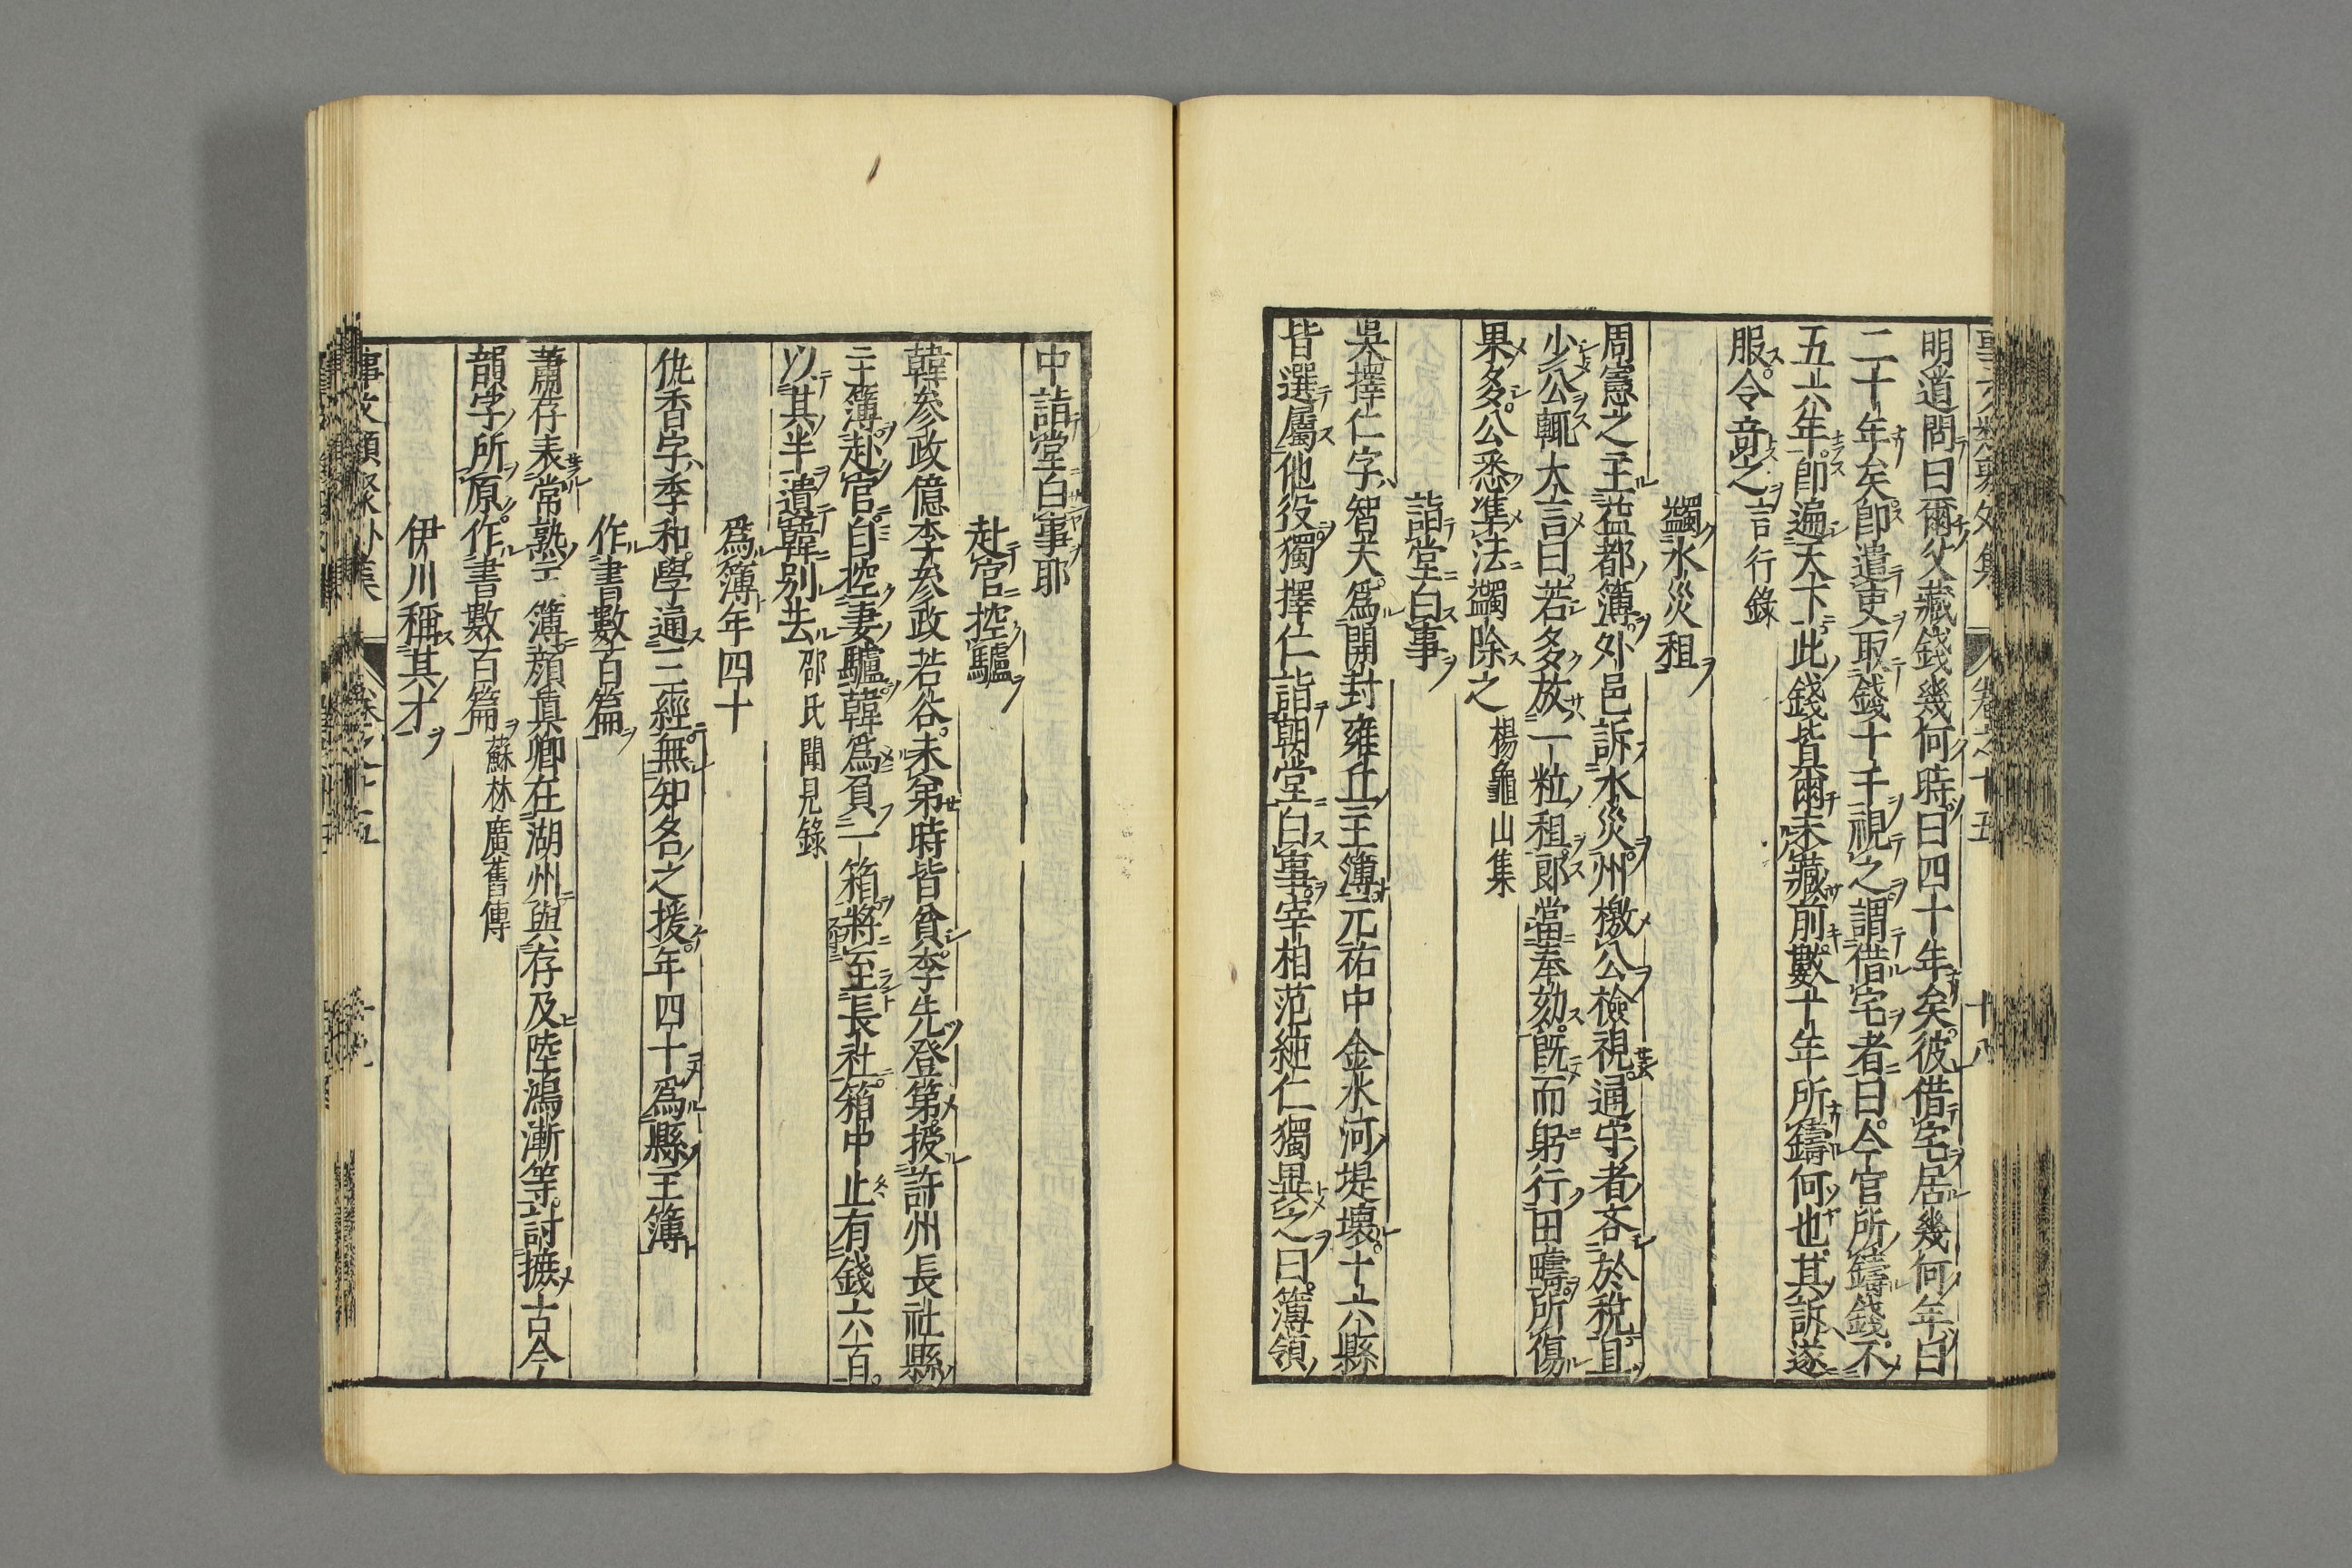 明道問曰爾父藏錢幾何時曰四十年矣彼借宅居幾何年曰
二十年矣即遣吏取錢十千視之謂借宅者曰今官所鑄錢不
五六年即遍天下此錢皆爾未藏前數十年所鑄何也其訴遂
服令竒之言行錄
蠲水災租
周憲之主益都簿外邑訴水災州檄公檢視通守者吝於稅且
少公輒大言曰若多放一粒租郎當奉劾既而躬行田疇所傷
果多公悉準法蠲除之楊龜山集
詣堂白事
吳擇仁字智夫爲開封雍丘主簿元祐中金水河堤壞十六縣
皆選屬他役獨擇仁詣朝堂白事宰相范純仁獨異之曰簿領
中詣堂白事耶
赴官控驢
韓參政億李參政若谷未第時皆貧李先登第授許州長社縣
主簿赴官自控妻驢韓爲負一箱將至長社箱中止有錢六百
以其半遺韓別去邵氏聞見錄
爲簿年四十
仇香字季和學通三經無知名之援年四十爲縣主簿
作書數百篇
蕭存表常熟主簿顔真卿在湖州與存及陸鴻漸等討摭古今
韻字所原作書數百篇蘇林廣舊傳
伊川稱其才